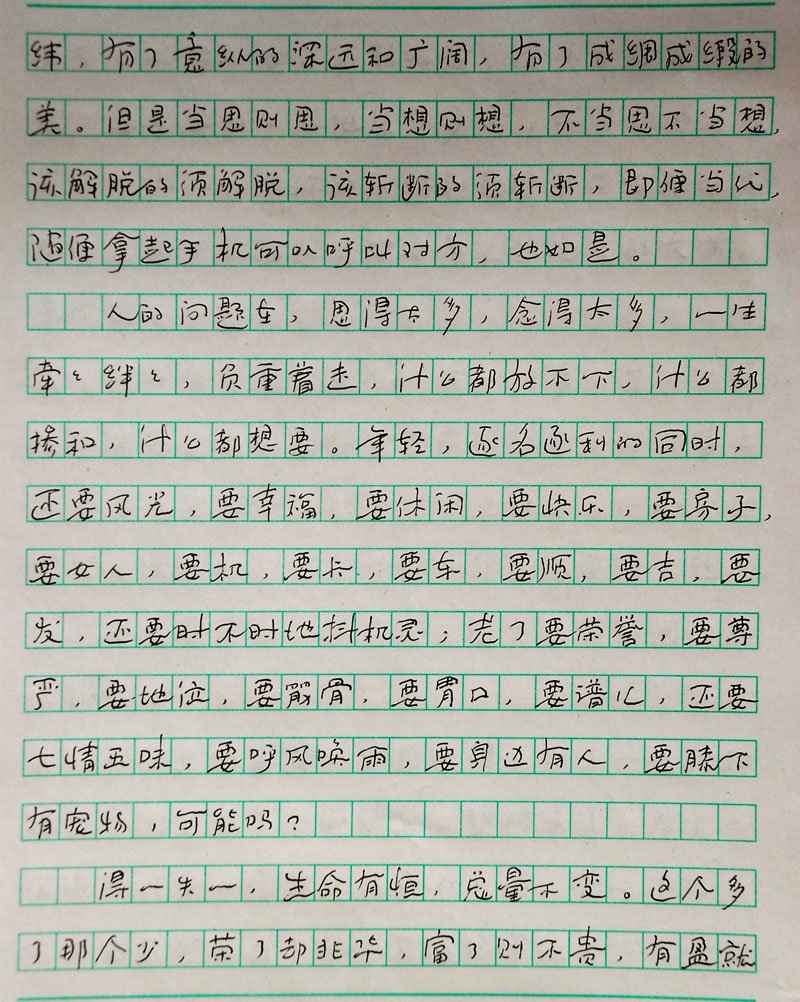 纬，有了意纵的深远和广阔，有了成绸成缎的
美。但是当思则思，当想则想，不当思不当想，
该解脱的须解脱，该斩断的须斩断，即便当代，
随便拿起手机可以呼叫对方，也如是。
人的问题在，思得太多，念得太多，一生
牵々绊々，负重着走，什么都放不下，什么都
掺和，什么都想要。年轻，逐名逐利的同时，
还要风光，要幸福，要休闲，要快乐，要房子，
要女人，要机，要卡，要车，要顺，要吉，要
发，还要时不时地抖机灵；老了要荣誉，要尊
严，要地位，要筋骨，要胃口，要谱儿，还要
七情五味，要呼风唤雨，要身边有人，要膝下
有宠物，可能吗？
得一失一，生命有恒，总量不变。这个多
了那个少，荣了却非华，富了则不贵，有盈就